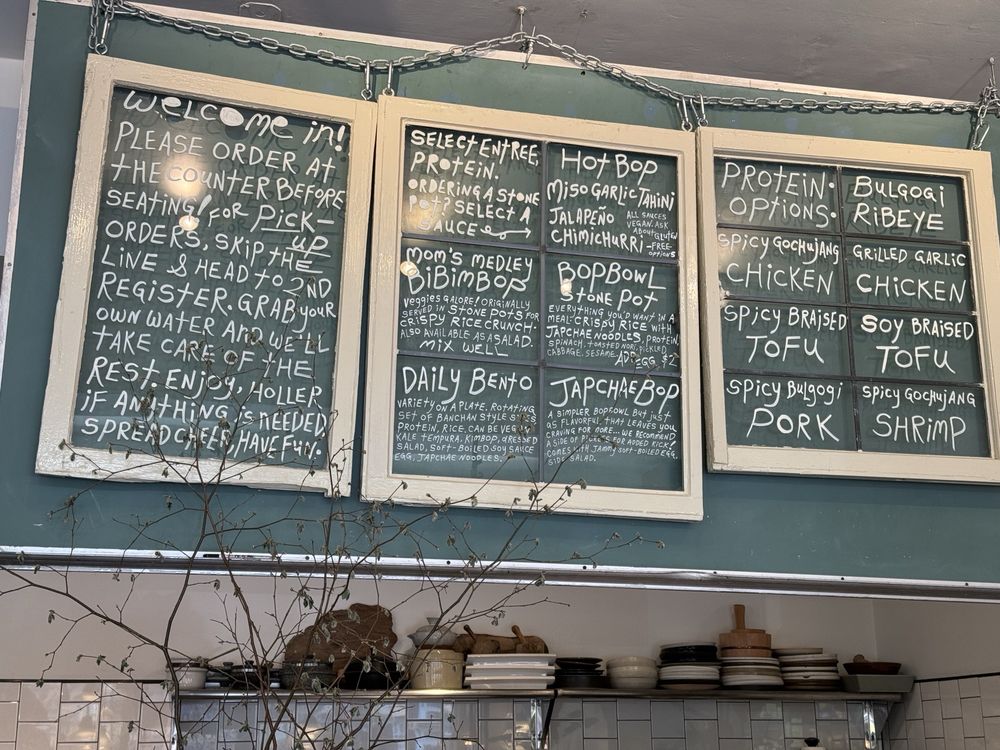 WELCOME IN!
PLEASE ORDER AT
THE COUNTER BEFORE
SEATING! FOR PICK-
UP
ORDERS, SKIP THE
LINE & HEAD TO 2ND
REGISTER. GRAB YOUR
OWN WATER AND WE'LL
TAKE CARE OF THE
REST. ENJOY, HOLLER
IF ANYTHING IS NEEDED
SPREAD CHEER, HAVE FUN.
SELECT ENTREE,
PROTEIN.
ORDERING A STONE
POT? SELECT A
SAUCE
HOT BOP
MISO GARLIC TAHINI
JALAPEÑO
CHIMICHURRI
ALL SAUCES
VEGAN. ASK
ABOUT GLUTEN
-FREE-
OPTIONS
MOM'S MEDLEY
BIBIMBOP
VEGGIES GALORE! ORIGINALLY
SERVED IN STONE POTS FOR
CRISPY RICE CRUNCH.
ALSO AVAILABLE AS A SALAD.
MIX WELL
BOPBOWL
STONE POT
EVERYTHING YOU'D WANT IN A
MEAL-CRISPY RICE WITH
JAPCHAE NOODLES, PROTEIN,
SPINACH, TOASTED NORI, PICKLED
CABBAGE, SESAME. ADD EGG $2
DAILY BENTO
VARIETY ON A PLATE. ROTATING
SET OF BANCHAN STYLE SIDES,
PROTEIN, RICE, CAN BE VEGAN.
KALE TEMPURA, KIMBOP, DRESSED
SALAD, SOFT-BOILED SOY SAUCE
EGG, JAPCHAE NOODLES.
JAPCHAEBOP
A SIMPLER BOPBOWL BUT JUST
AS FLAVORFUL THAT LEAVES YOU
CRAVING FOR MORE... WE RECOMMEND
A SIDE OF PICKLES FOR ADDED KICK!
COMES WITH JAMMY SOFT-BOILED EGG,
SIDE SALAD.
PROTEIN
OPTIONS:
BULGOGI
RIBEYE
SPICY GOCHUJANG
CHICKEN
GRILLED GARLIC
CHICKEN
SPICY BRAISED
TOFU
SOY BRAISED
TOFU
SPICY BULGOGI
PORK
SPICY GOCHUJANG
SHRIMP